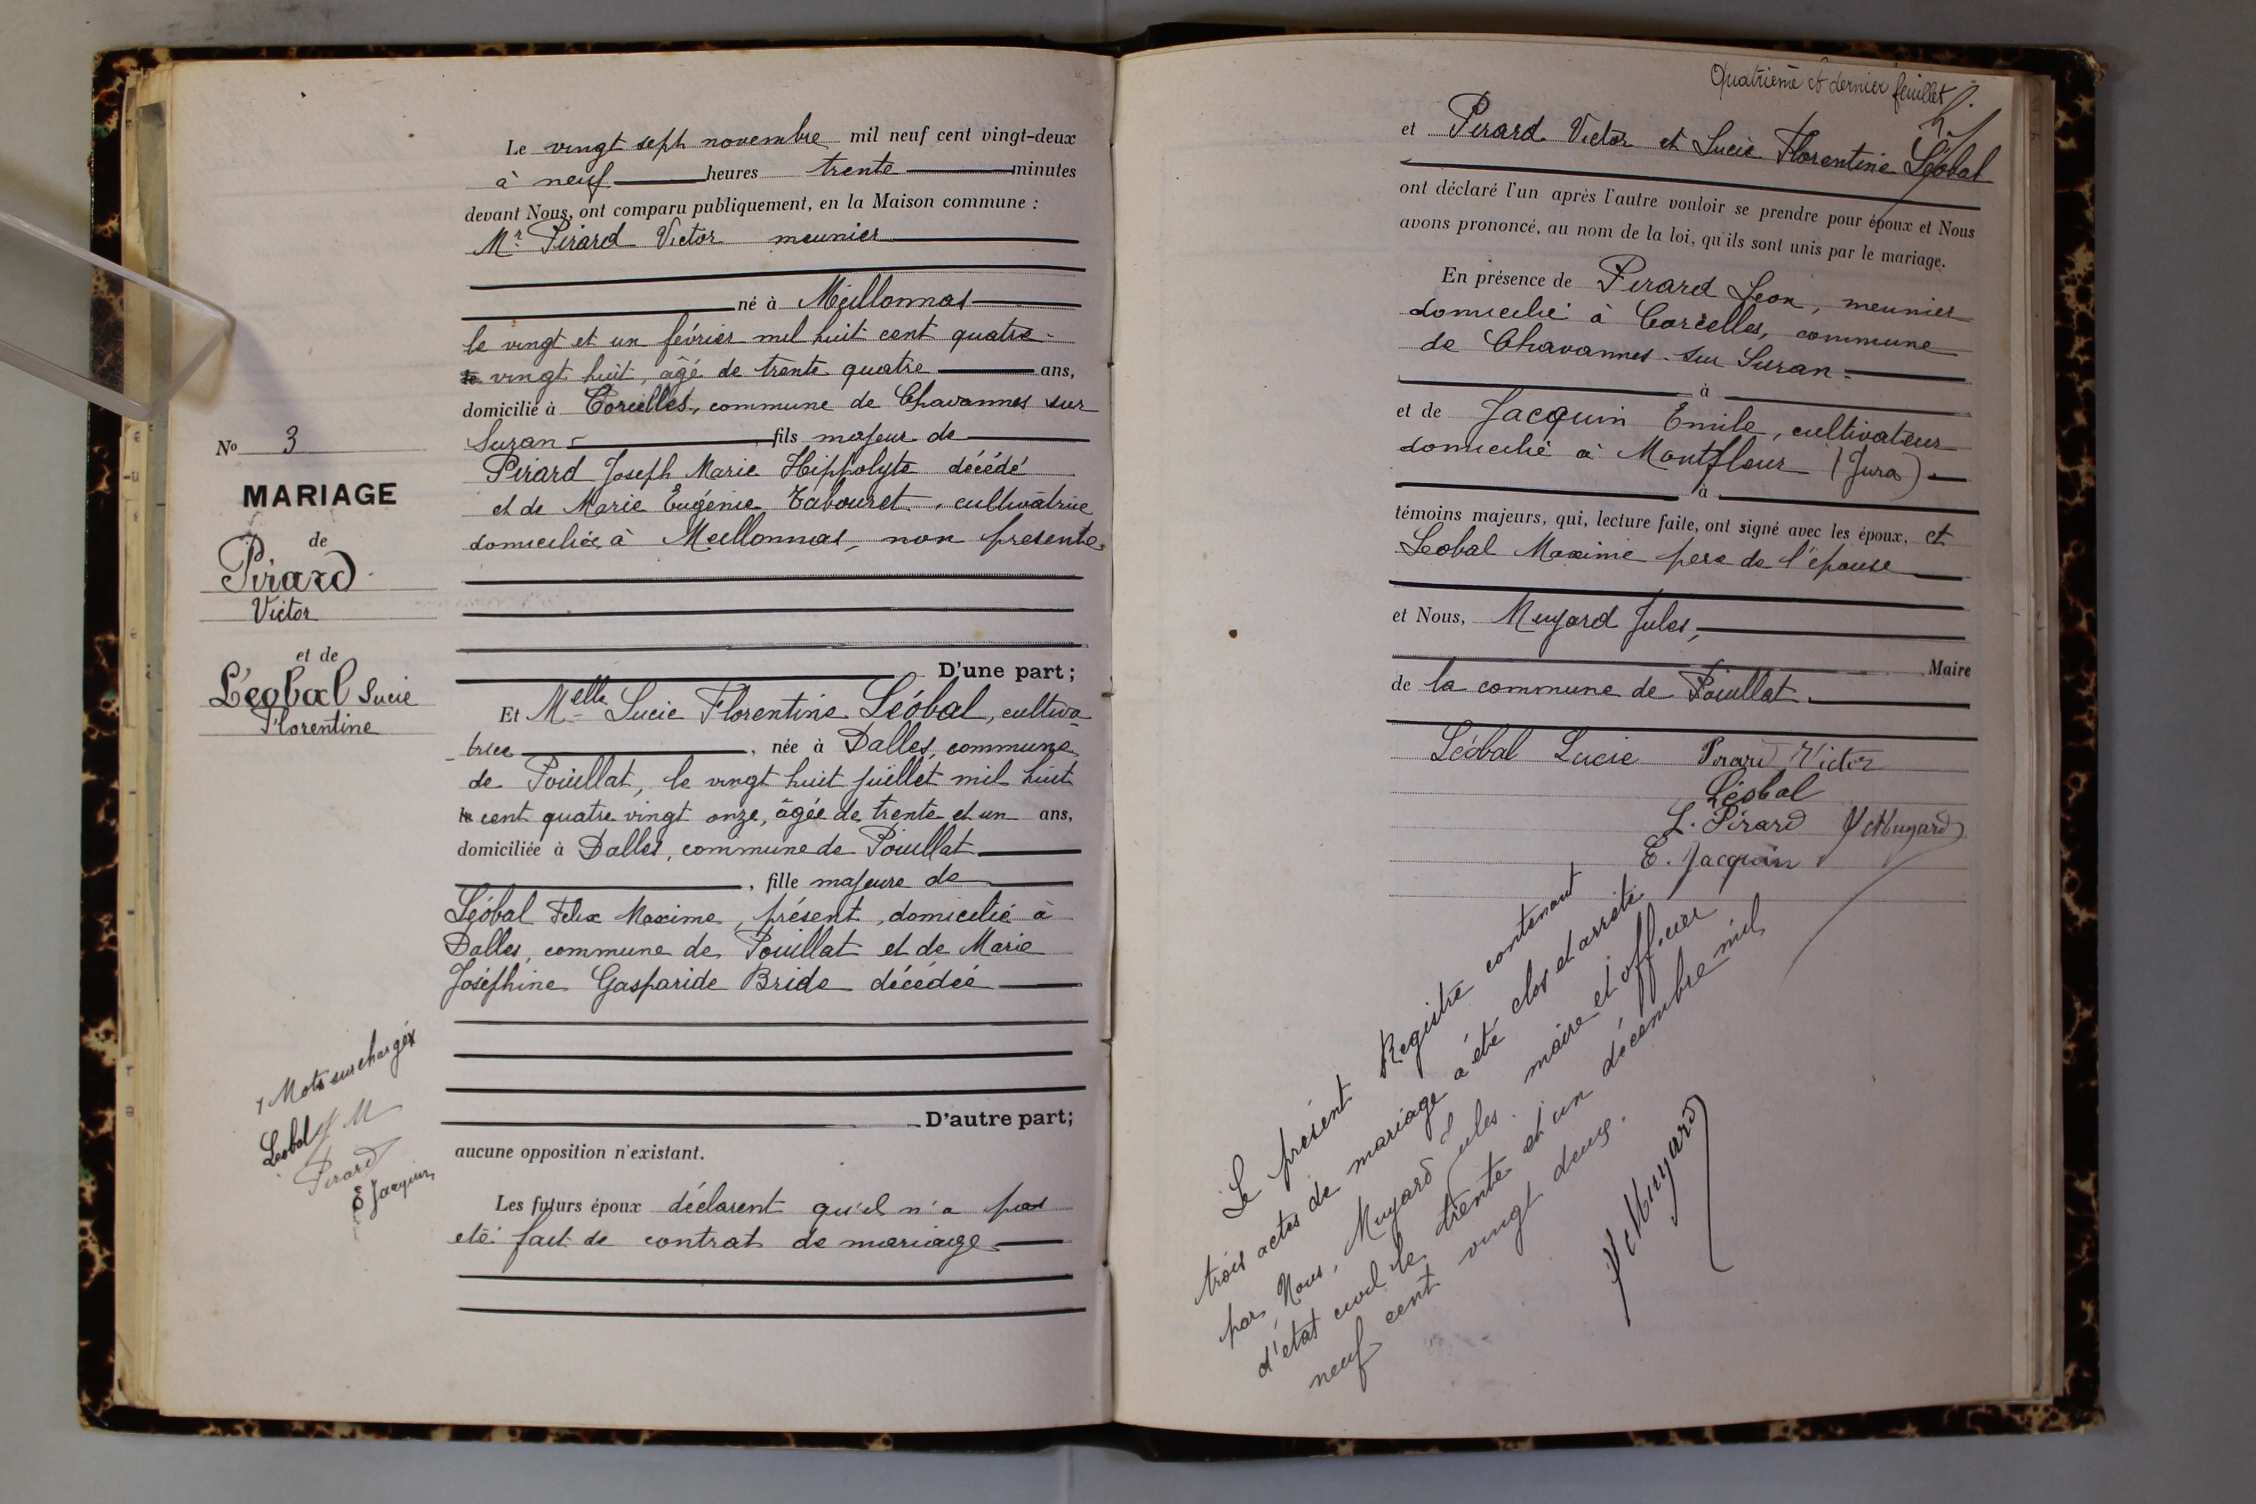 Le vingt sept novembre mil neuf cent vingt-deux
à neuf heures trente minutes
devant Nous, ont comparu publiquement, en la Maison commune :
Mr Pirard Victor meunier
né à Meillonnas
le vingt et un février mil huit cent quatre
vingt huit, âgé de trente quatre ans,
domicilié à Corcelles, commune de Chavannes sur
Suran fils majeur de
Pirard Joseph Marie Hippolyte décédé
et de Marie Eugénie Tabouret, cultivatrice
domiciliée à Meillonnas, non présente
D'une part ;
Et Melle Lucie Florentine Léobal, cultiva
trice, née à Dalles, commune
de Pouillat, le vingt huit juillet mil huit
cent quatre vingt onze, âgée de trente et un ans,
domiciliée à Dalles, commune de Pouillat
, fille majeure de
Léobal Felix Maxime, présent, domicilié à
Dalles, commune de Pouillat et de Marie
Joséphine Gasparide Bride décédée
D'autre part;
aucune opposition n'existant.
Les futurs époux déclarent qu'il n'a pas
été fait de contrat de mariage
No 3
MARIAGE
de
Pirard
Victor
et de
Léobal Lucie
Florentine
1 Mots surchargés
Leobal J M
Pirard
E Jacquin
Quatrième et dernier feuillet
et Pirard Victor et Lucie Florentine Léobal
ont déclaré l'un après l'autre vouloir se prendre pour époux et Nous
avons prononcé, au nom de la loi, qu'ils sont unis par le mariage.
En présence de Pirard Leon, meunier
domicilié à Corcelles, commune
de Chavannes-sur Suran
à
et de Jacquin Emile, cultivateur
domicilié à Montfleur (Jura)
à
témoins majeurs, qui, lecture faite, ont signé avec les époux, et
Leobal Maxime pere de l'épouse
et Nous, Muyard Jules,
Maire
de la commune de Pouillat
Léobal Lucie Pirard Victor
Léobal
L. Pirard J Muyard
E. Jacquin
Le présent Registre contenant
trois actes de mariage a été clos et arrêté
par Nous, Muyard Jules maire et officier
d'état civil le trente et un décembre mil
neuf cent vingt deux.
J Muyard